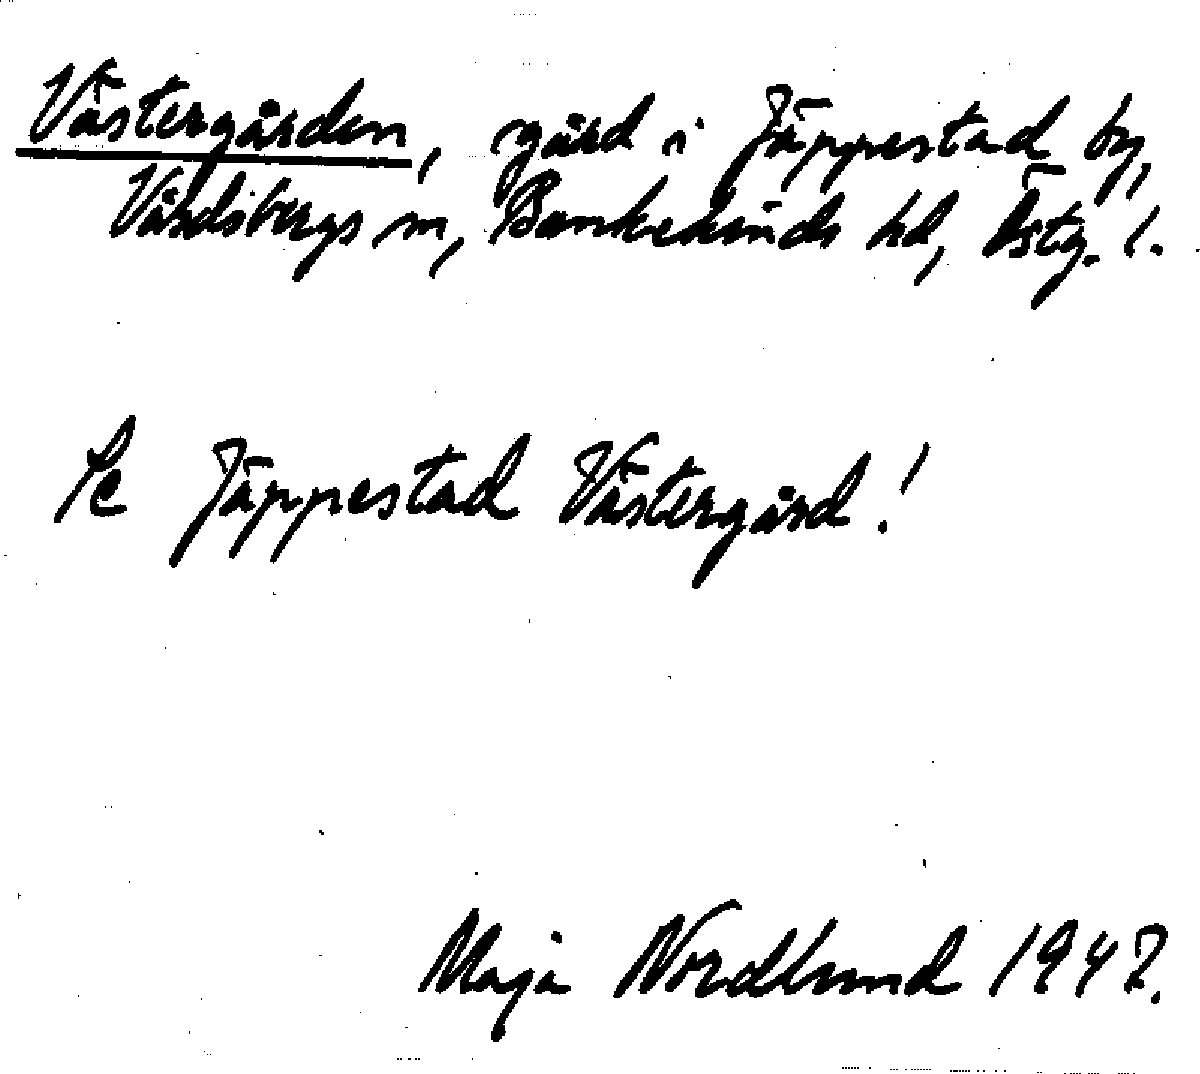 Västergården, gård i Jäppestad by,
Vårdsbergs sn, Bankekinds hd, Östg. l.
Se Jäppestad Västergård!
Maja Nordlund 1947.